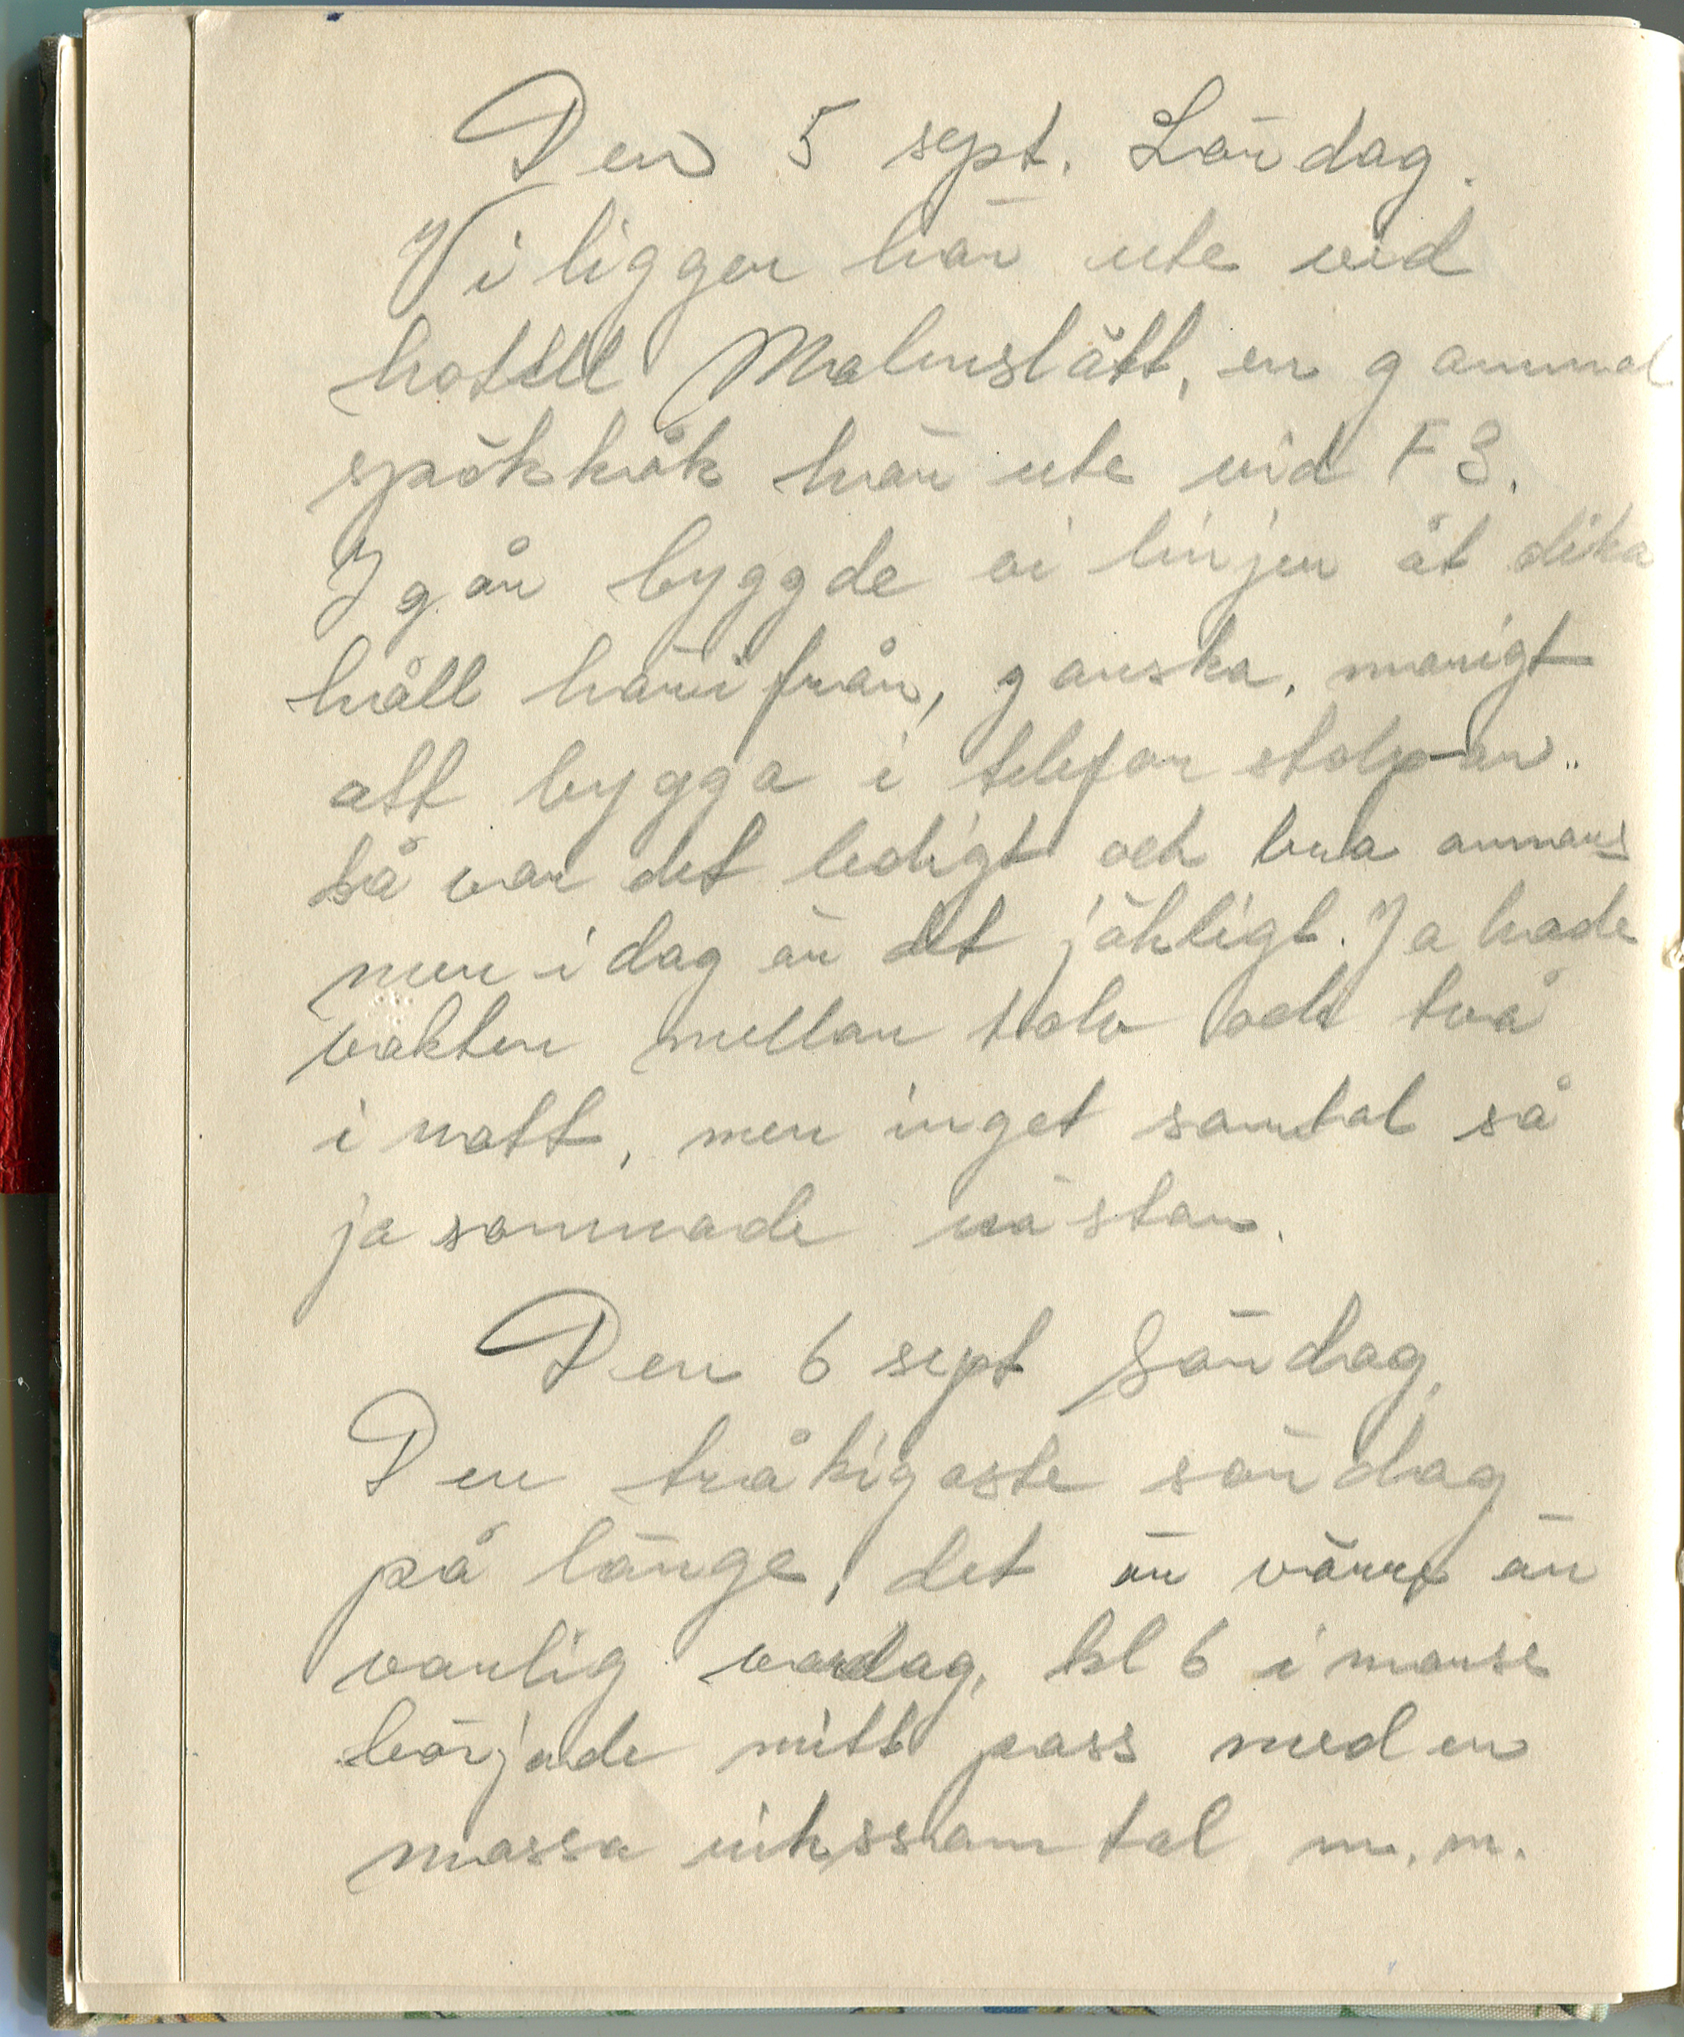 Den 5 sept. Lördag.
Vi ligger här ute vid
hotell Malmslätt, en gammal
spökkåk här ute vid F 3.
Igår byggde vi linjer åt olika
håll härifrån, ganska, marigt
att bygga i telefon stolpar..
så var det ledigt och bra annars
men i dag är det jäkligt. Ja hade
vakten mellan tolv och två
i natt, men inget samtal så
ja somnade nästan.
Den 6 sept Söndag.
Den tråkigaste söndag
på länge, det är värre än
vanlig vardag, kl 6 i morse
började mitt pass med en
massa rikssamtal m.m.